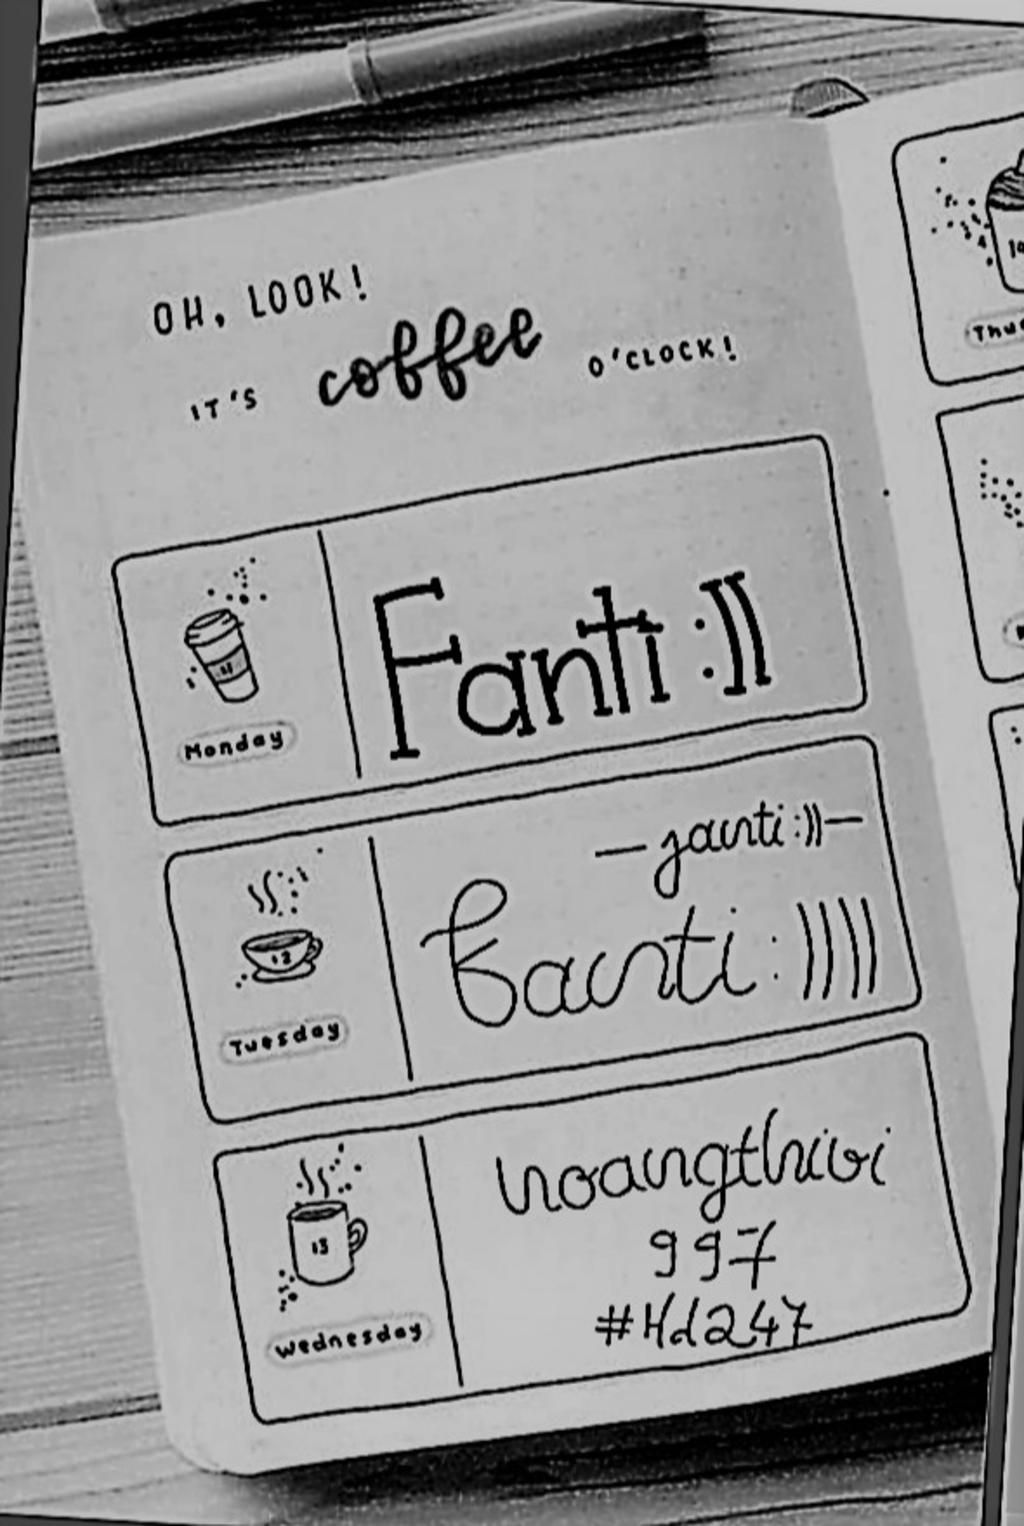 OH, LOOK!
IT'S coffee O'CLOCK!
Fanti :))
11
Monday
— fanti :)) —
fanti : ))))
12
Tuesday
hoangthivi
997
#Hd247
13
Wednesday